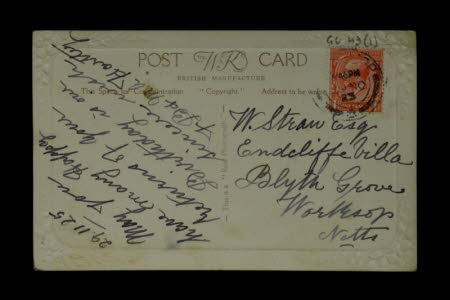 GG 43(1)
POST THE W.R. CARD
BRITISH MANUFACTURE
This Space for Communication "Copyright." Address to be written
W. Straw Esq
Endcliffe Villa
Blyth Grove
Worksop
Notts
29.11.25
May you
have many Happy
returns of your
Birthday is our
sincere wish